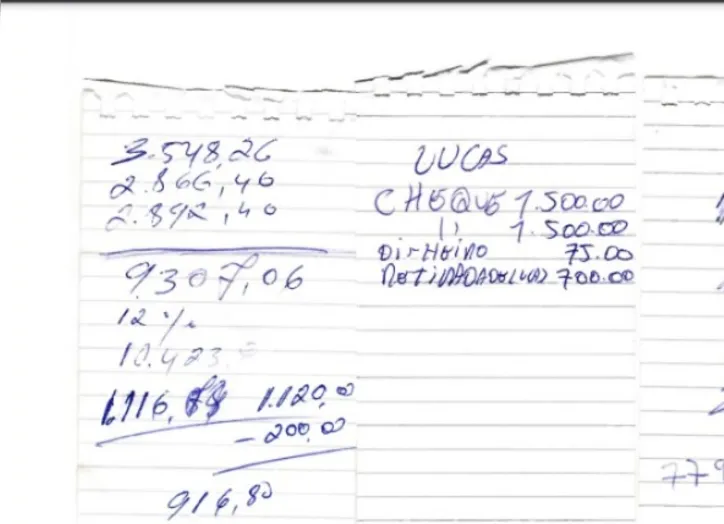 3.548,26
2.866,40
2.892,40
9.307,06
12%
10.423,
1.116, 1.120,00
-200,00
916,80
LUCAS
CHEQUE 1.500.00
11 1.500.00
DINHEIRO 75.00
RETIRADA DE LUCAS 700.00
779